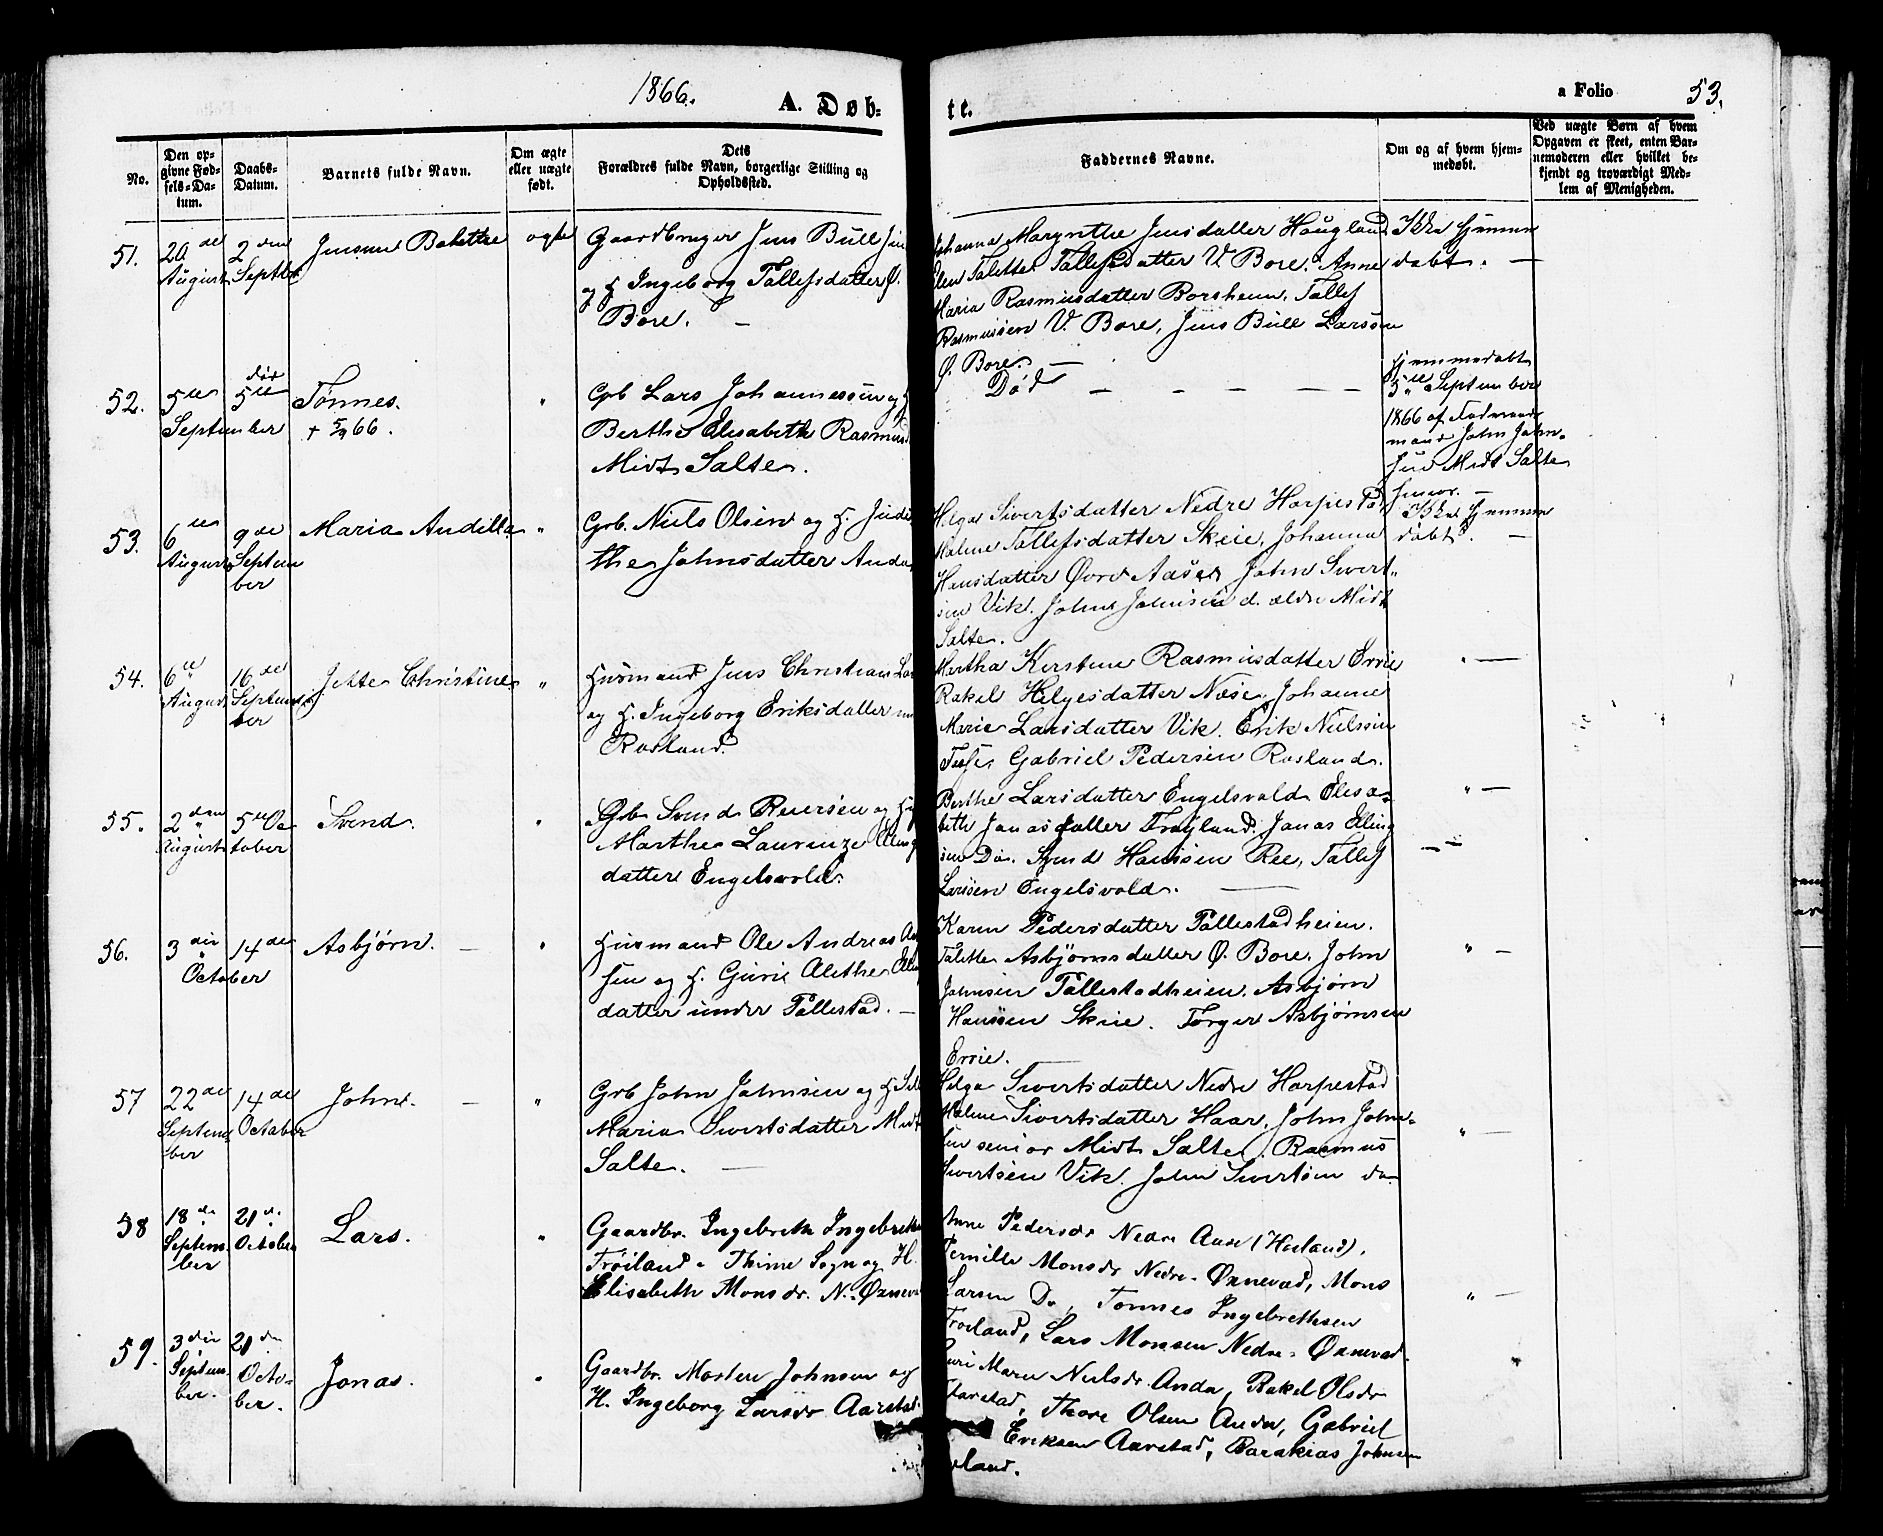 1866.
A. Døb-
te.
a Folio 53.
No.
Den op-
givne Fød-
sels-Da-
tum.
Daabs-
Datum.
Barnets fulde Navn.
Om ægte
eller uægte
født.
Dets
Forældres fulde Navn, borgerlige Stilling og
Opholdssted.
Faddernes Navne.
Om og af hvem hjem-
medøbt.
Ved uægte Børn af hvem
Opgaven er skeet, enten Bar-
nemoderen eller hvilket be-
kjendt og troværdigt Med-
lem af Menigheden.
51.
August
2den
Septbr
ægte
Gaardbruger Jens Bull
og H. Ingeborg Tollefsdatter Ø.
Bore. —
Johanna Margrethe Jensdatter Haugland
Elen Talette Tollefsdatter V. Bore. Anne
Maria Rasmusdatter Borsheim, Tollef
Rasmussen V. Bore, Jens Bull Larssen
Ø. Bore.
Ikke hjemme
døbt. —
52.
5te
September
død
5te
Tønnes.
+ 5/9 66.
"
Gb Lars Johannessen og H
Berthe Elisabeth Rasmusd
Midt Salte.
Død — — — — —
hjemmedøbt
5te September
1866 af
mand John John-
sen Midt Salte
junior. —
53.
6te
August
9de
Septem
ber
Maria Andilla
"
Grb. Niels Olsen og H. Judi
the Johnsdatter Anda
Helga Sivertsdatter Nedre Harpestad
Malene Tollefsdatter Skeie, Johanna
Hansdatter Øvre Aase, John Sivert-
sen Vik. John Johnsen d. ældre Midt
Salte.
Ikke hjemme
døbt. —
54.
6te
August
16de
Septem
ber
Jette Christine
"
Husmand Jens Christian
og H. Ingeborg Eriksdatter
Rosland.
Martha Kirstine Rasmusdatter Errie
Rakel Helgesdatter Næse, Johanne
Marie Larsdatter Vik. Erik Nielssen
Gabriel Pedersen Rosland.
" —
55.
2den
August
5te Oc
tober
Svend.
"
Gb Svend Reiersen og H
Marthe Laurenze Elling
datter Engelsvold.
Berthe Larsdatter Engelsvold. Elisa-
beth Jonasdatter Frøyland. Jonas Elling
sen Do. Svend Hanssen Ree, Tollef
Larssen Engelsvold. —
" —
— " —
56.
3die
October
14de
Asbjørn. —
"
Husmand Ole Andreas
sen og H. Gurie Alethe
datter under Tollestad. —
Karen Pedersdatter Tollestadheien.
Talette Asbjørnsdatter Ø. Bore. John
Johnsen Tollestadheien. Asbjørn
Hanssen Skeie. Torger Asbjørnsen
Errie.
" —
57
22de
Septem-
ber
14de
October
John. —
"
Grb John Johnsen og H
Maria Sivertsdatter Midt
Salte. —
Helga Sivertsdatter Nedre Harpestad
Malene Sivertsdatter Haar, John John-
sen senior Midt Salte, Rasmus
Sivertsen Vik. John Sivertsen do
" —
58
18de
Septem-
ber
21de
October
Lars.
"
Gaardbr. Ingebreth Ingebreths
Frøiland - Thime Sogn og H.
Elisabeth Monsdr. N. Øxneva
Anne Pedersdr Nedre Aase (Hæland).
Pernille Monsdr Nedre-Øxnevad, Mons
Larsen Do, Tønnes Ingebrethsen
Frøiland, Lars Monsen Nedre-Øxnevad.
" —
59.
3die
Septem-
ber.
21de
Octo-
ber.
Jonas.
"
Gaardbr. Morten Johnsen og
H. Ingeborg Larsdr Aarstad.
Guri Maren Nielsdr Anda, Rakel Olsdr
Aarstad, Thore Olsen Anda, Gabriel
Eriksen Aarstad, Barakias Johnsen
"